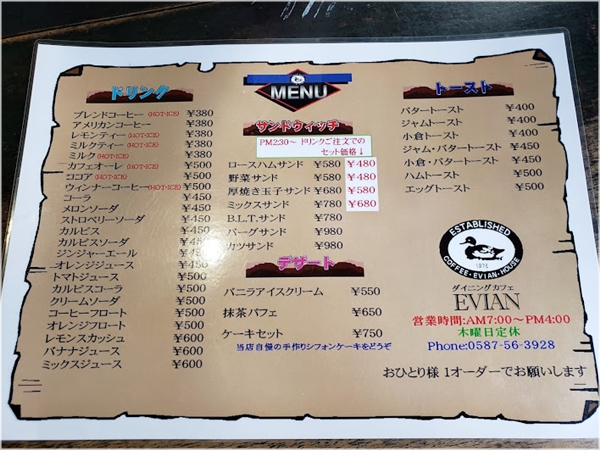 ドリンク
ブレンドコーヒー (HOT・ICE) ¥380
アメリカンコーヒー ¥380
レモンティー (HOT・ICE) ¥380
ミルクティー (HOT・ICE) ¥380
ミルク (HOT・ICE) ¥380
カフェオーレ (HOT・ICE) ¥500
ココア (HOT・ICE) ¥500
ウィンナーコーヒー (HOT・ICE) ¥500
コーラ ¥450
メロンソーダ ¥450
ストロベリーソーダ ¥450
カルピス ¥450
カルピスソーダ ¥450
ジンジャーエール ¥450
オレンジジュース ¥450
トマトジュース ¥500
カルピスコーラ ¥500
クリームソーダ ¥500
コーヒーフロート ¥500
オレンジフロート ¥500
レモンスカッシュ ¥600
バナナジュース ¥600
ミックスジュース ¥600
MENU
サンドウィッチ
PM2:30～ドリンクご注文での
セット価格↓
ロースハムサンド ¥580 ¥480
野菜サンド ¥580 ¥480
厚焼き玉子サンド ¥680 ¥580
ミックスサンド ¥780 ¥680
B.L.T.サンド ¥780
バーグサンド ¥980
カツサンド ¥980
デザート
バニラアイスクリーム ¥550
抹茶パフェ ¥650
ケーキセット ¥750
当店自慢の手作りシフォンケーキをどうぞ
トースト
バタートースト ¥400
ジャムトースト ¥400
小倉トースト ¥400
ジャム・バタートースト ¥450
小倉・バタートースト ¥450
ハムトースト ¥500
エッグトースト ¥500
ESTABLISHED
COFFEE・EVIAN・HOUSE
ダイニングカフェ
EVIAN
営業時間:AM7:00～PM4:00
木曜日定休
Phone:0587-56-3928
おひとり様 1オーダーでお願いします